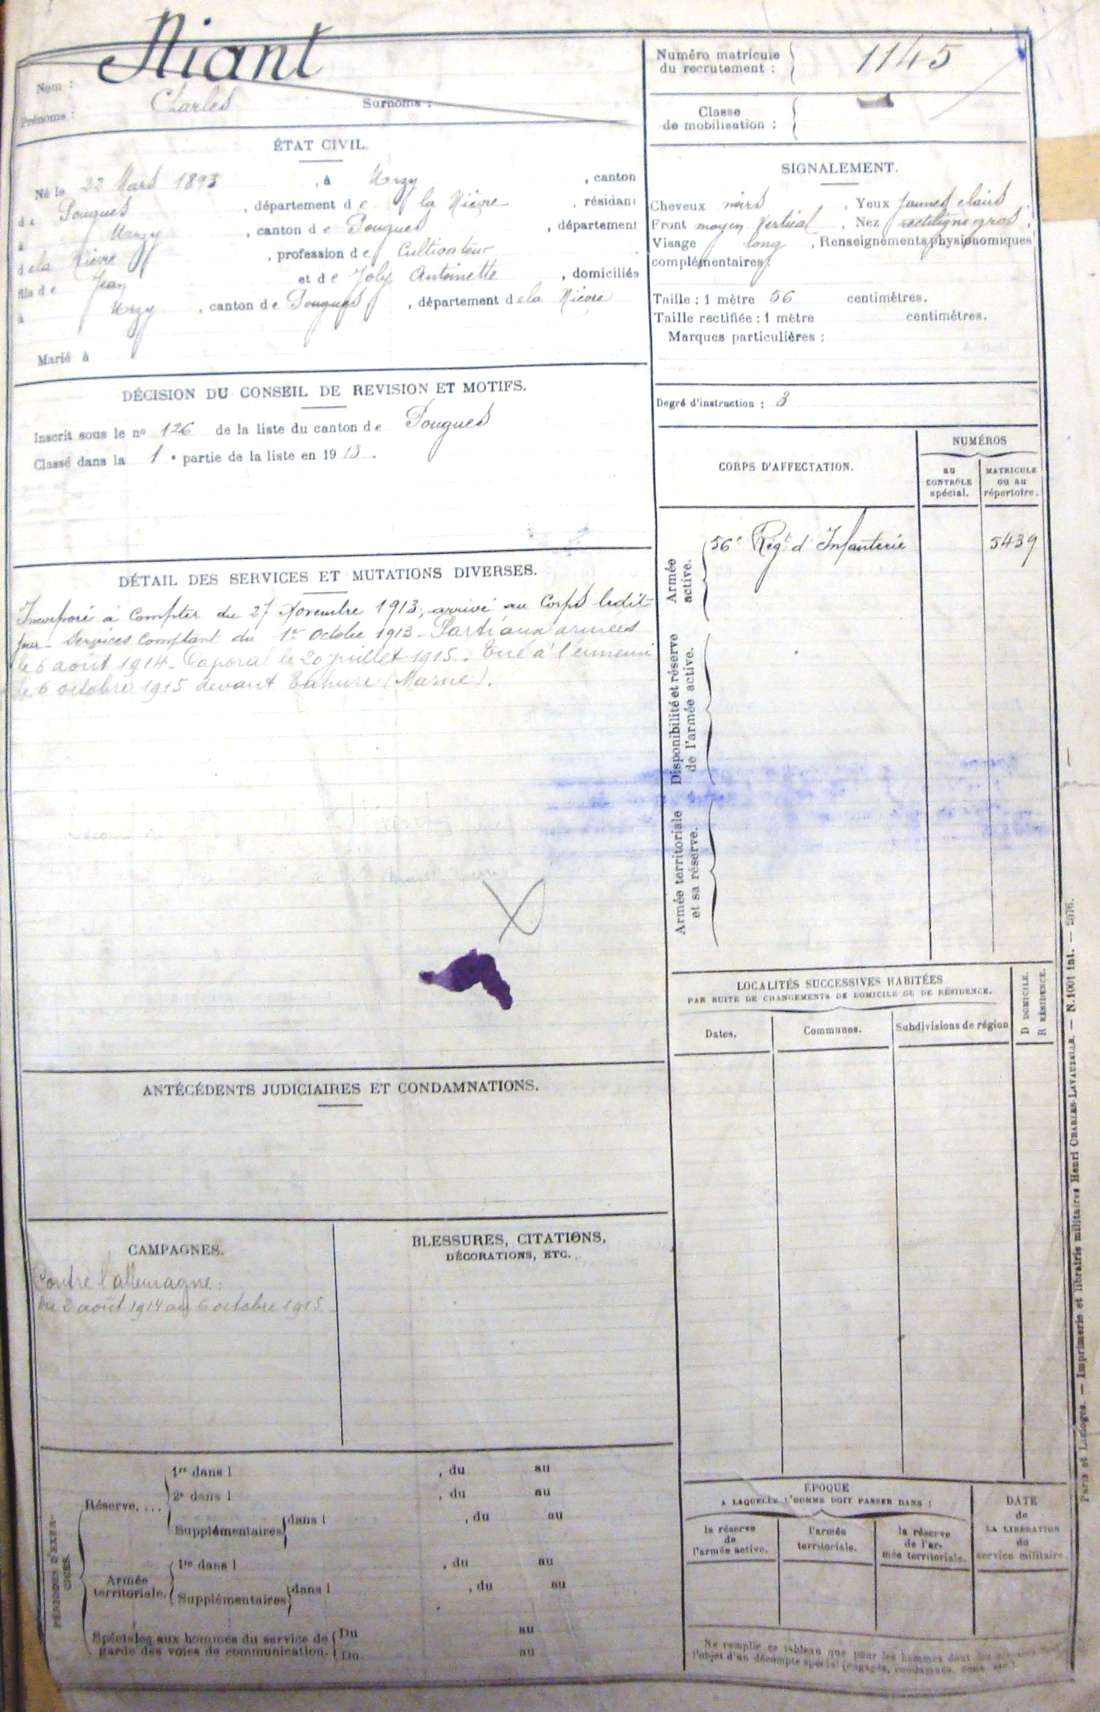 Nom : Niant
Prénoms : Charles Surnoms :
Numéro matricule
du recrutement : 1145
Classe
de mobilisation :
ÉTAT CIVIL.
Né le 22 Mars 1893, à Urzy, canton
de Pougues, département de la Nièvre, résidant
à Urzy, canton de Pougues, département
de la Nièvre, profession de Cultivateur
fils de Jean et de Joly Antoinette, domiciliés
à Urzy, canton de Pougues, département de la Nièvre
Marié à
SIGNALEMENT.
Cheveux noirs, Yeux jaunes clairs
Front moyen Vertical, Nez rectiligne gros,
Visage long, Renseignements physionomiques
complémentaires :
Taille : 1 mètre 56 centimètres.
Taille rectifiée : 1 mètre centimètres.
Marques particulières :
Degré d'instruction : 3
DÉCISION DU CONSEIL DE REVISION ET MOTIFS.
Inscrit sous le no 126 de la liste du canton de Pougues
Classé dans la 1e partie de la liste en 1913.
CORPS D'AFFECTATION.
NUMÉROS
au
CONTRÔLE
spécial.
MATRICULE
ou au
répertoire.
Armée
active.
56e Régt d'Infanterie 5439
Disponibilité et réserve
de l'armée active.
Armée territoriale
et sa réserve.
DÉTAIL DES SERVICES ET MUTATIONS DIVERSES.
Incorporé à compter du 27 Novembre 1913, arrivé au Corps ledit
jour. Services Comptant du 1er Octobre 1913. Parti aux armées
le 6 août 1914. Caporal le 20 juillet 1915. Tué à l'ennemi
le 6 octobre 1915 devant Tahure (Marne).
LOCALITÉS SUCCESSIVES HABITÉES
PAR SUITE DE CHANGEMENTS DE DOMICILE OU DE RÉSIDENCE.
Dates.
Communes.
Subdivisions de région
D DOMICILE.
R RÉSIDENCE.
ANTÉCÉDENTS JUDICIAIRES ET CONDAMNATIONS.
CAMPAGNES.
Contre l'allemagne :
du 2 août 1914 au 6 octobre 1915
BLESSURES, CITATIONS,
DÉCORATIONS, ETC.
PÉRIODES D'EXER-
CICES.
Réserve....
1re dans l , du au
2e dans l , du au
Supplémentaires dans l , du au
Armée
territoriale.
1re dans l , du au
Supplémentaires dans l , du au
Spéciales aux hommes du service de
garde des voies de communication.
Du au
Du au
ÉPOQUE
A LAQUELLE L'HOMME DOIT PASSER DANS :
la réserve
de
l'armée active.
l'armée
territoriale.
la réserve
de l'ar-
mée territoriale.
DATE
de
LA LIBÉRATION
du
service militaire.
Ne remplir ce tableau que pour les hommes dont les
l'objet d'un décompte spécial (engagés,
Paris et Limoges. — Imprimerie et librairie militaires Henri CHARLES-LAVAUZELLE. — N. 1001 int. — 2076.